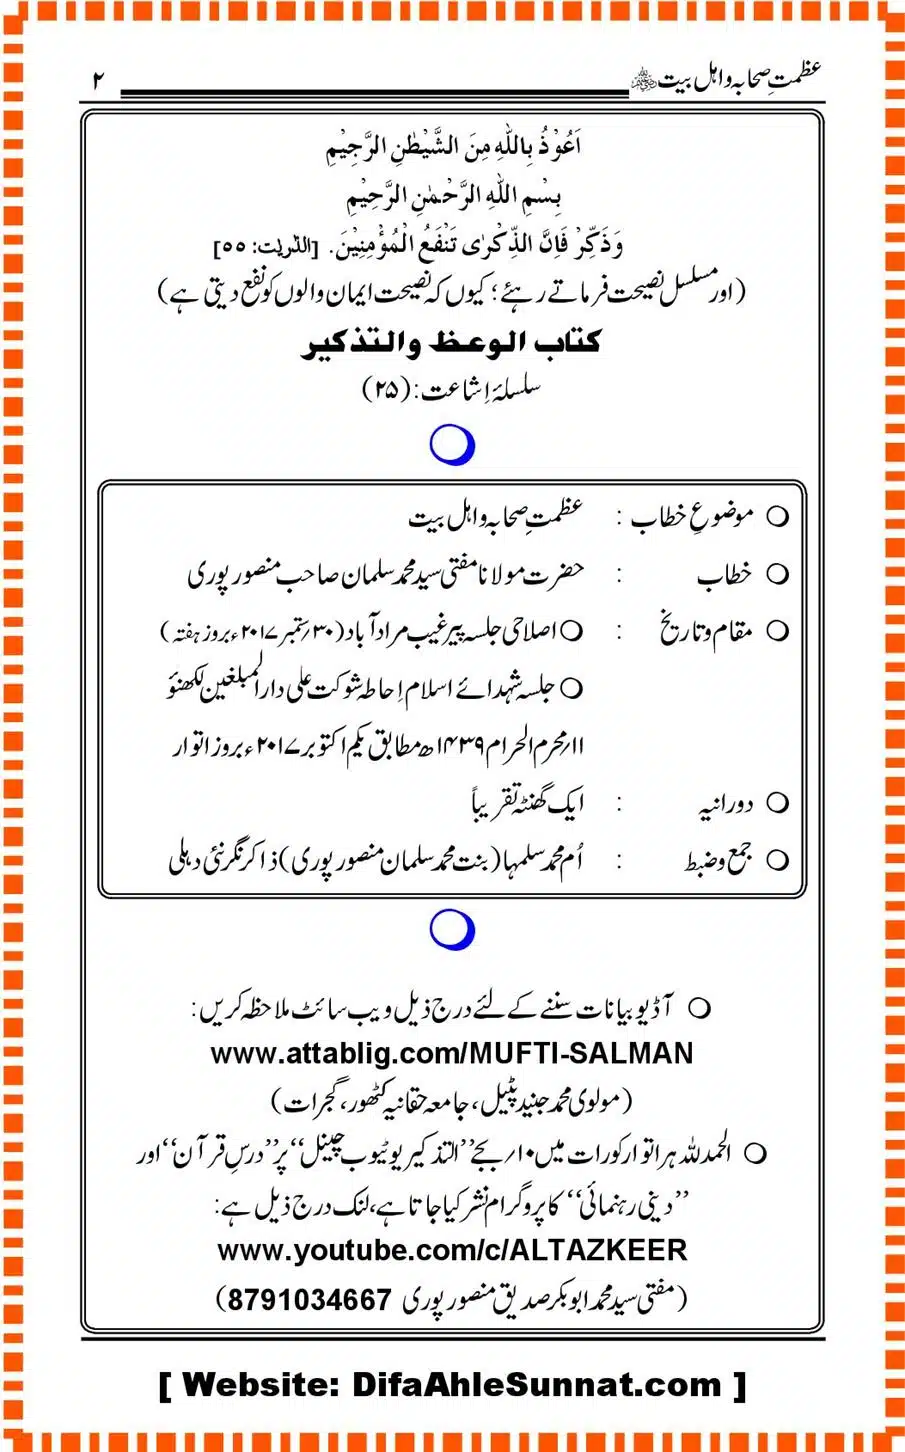 عظمتِ صحابہ و اہل بیت ؓ ۲
اَعُوْذُ بِاللّٰهِ مِنَ الشَّيْطٰنِ الرَّجِيْمِ
بِسْمِ اللّٰهِ الرَّحْمٰنِ الرَّحِيْمِ
وَذَكِّرْ فَاِنَّ الذِّكْرٰى تَنْفَعُ الْمُؤْمِنِيْنَ. [الذٰریٰت: ۵۵]
(اور مسلسل نصیحت فرماتے رہئے؛ کیوں کہ نصیحت ایمان والوں کو نفع دیتی ہے)
كتاب الوعظ والتذكير
سلسلۂ اِشاعت: (۲۵)
موضوعِ خطاب : عظمتِ صحابہ و اہل بیت
خطاب : حضرت مولانا مفتی سید محمد سلمان صاحب منصورپوری
مقام و تاریخ : اصلاحی جلسہ پیرغیب مرادآباد (۳۰؍ستمبر ۲۰۱۷ء بروز ہفتہ)
جلسہ شہدائے اسلام اِحاطہ شوکت علی دارالمبلغین لکھنؤ
۱۱؍محرم الحرام ۱۴۳۹ھ مطابق یکم اکتوبر ۲۰۱۷ء بروز اتوار
دورانیہ : ایک گھنٹہ تقریباً
جمع و ضبط : اُم محمد سلمہا (بنت محمد سلمان منصورپوری) ذاکر نگر نئی دہلی
آڈیو بیانات سننے کے لئے درج ذیل ویب سائٹ ملاحظہ کریں:
www.attablig.com/MUFTI-SALMAN
(مولوی محمد جنید پٹیل، جامعہ حقانیہ کٹھور، گجرات)
الحمدللہ ہر اتوار کو رات میں ۱۰؍بجے ’’التذکیر یوٹیوب چینل‘‘ پر ’’درسِ قرآن‘‘ اور
’’دینی رہنمائی‘‘ کا پروگرام نشر کیا جاتا ہے، لنک درج ذیل ہے:
www.youtube.com/c/ALTAZKEER
(مفتی سید محمد ابوبکر صدیق منصورپوری 8791034667)
[ Website: DifaAhleSunnat.com ]